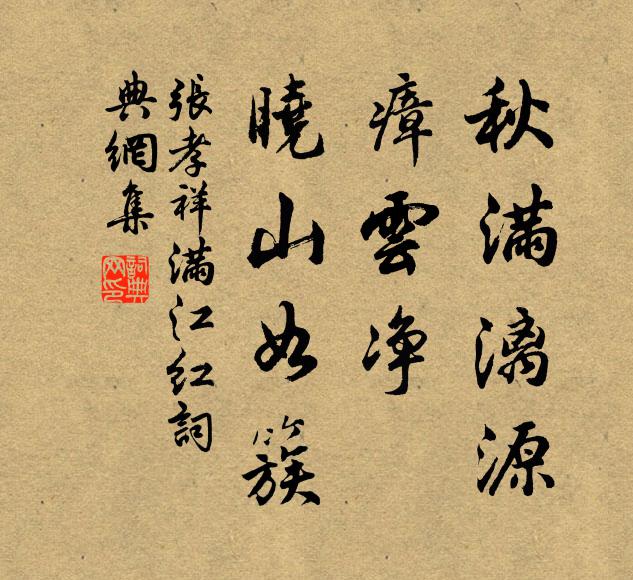 秋满漓源
瘴雲净
曉山如簇
張孝祥滿江紅詞
典網集
詞典網印